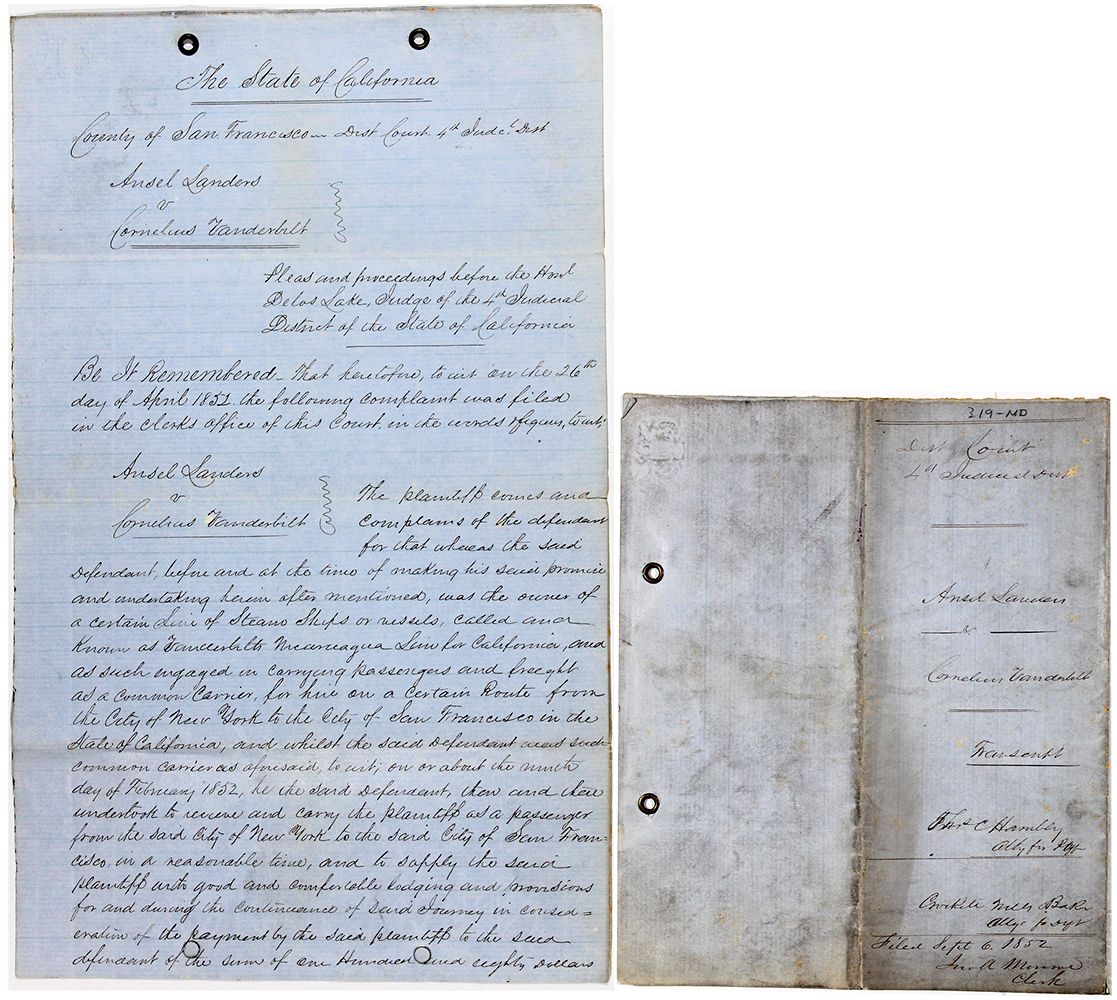 The State of California
County of San Francisco Dist Court 4th Judcl Dist
Ansel Landers
v
Cornelius Vanderbilt
Pleas and proceedings before the Honl
Delos Lake, Judge of the 4th Judicial
District of the State of California
Be It Remembered - That heretofore, to wit on the 26th
day of April 1852 the following complaint was filed
in the Clerks office of this Court, in the words & figures, to wit;
Ansel Landers
v
Cornelius Vanderbilt
The plaintiff comes and
complains of the defendant
for that whereas the said
Defendant, before and at the time of making his said promise
and undertaking herein after mentioned, was the owner of
a certain Line of Steam Ships or vessels, called and
Known as Vanderbilts Nicaragua Line for California, and
as such engaged in carrying passengers and freight
as a common Carrier, for hire on a Certain Route from
the City of New York to the City of San Francisco in the
State of California, and whilst the said Defendant was such
common carrier as aforesaid, to wit; on or about the ninth
day of February 1852, he the said Defendant, then and there
undertook to receive and carry the plaintiff as a passenger
from the said City of New York to the said City of San Fran-
cisco, in a reasonable time, and to supply the said
plaintiff with good and comfortable lodging and provisions
for and during the continuance of said Journey in consid=
eration of the payment by the said plaintiff to the said
defendant of the sum of one Hundred and eighty Dollars
319-ND
Dist Court
4th Judicial Dist
Ansel Landers
v
Cornelius Vanderbilt
Transcript
C Hambly
Atty for Plff
Crockett
Attys for Dft
Filed Sept 6. 1852
Clerk